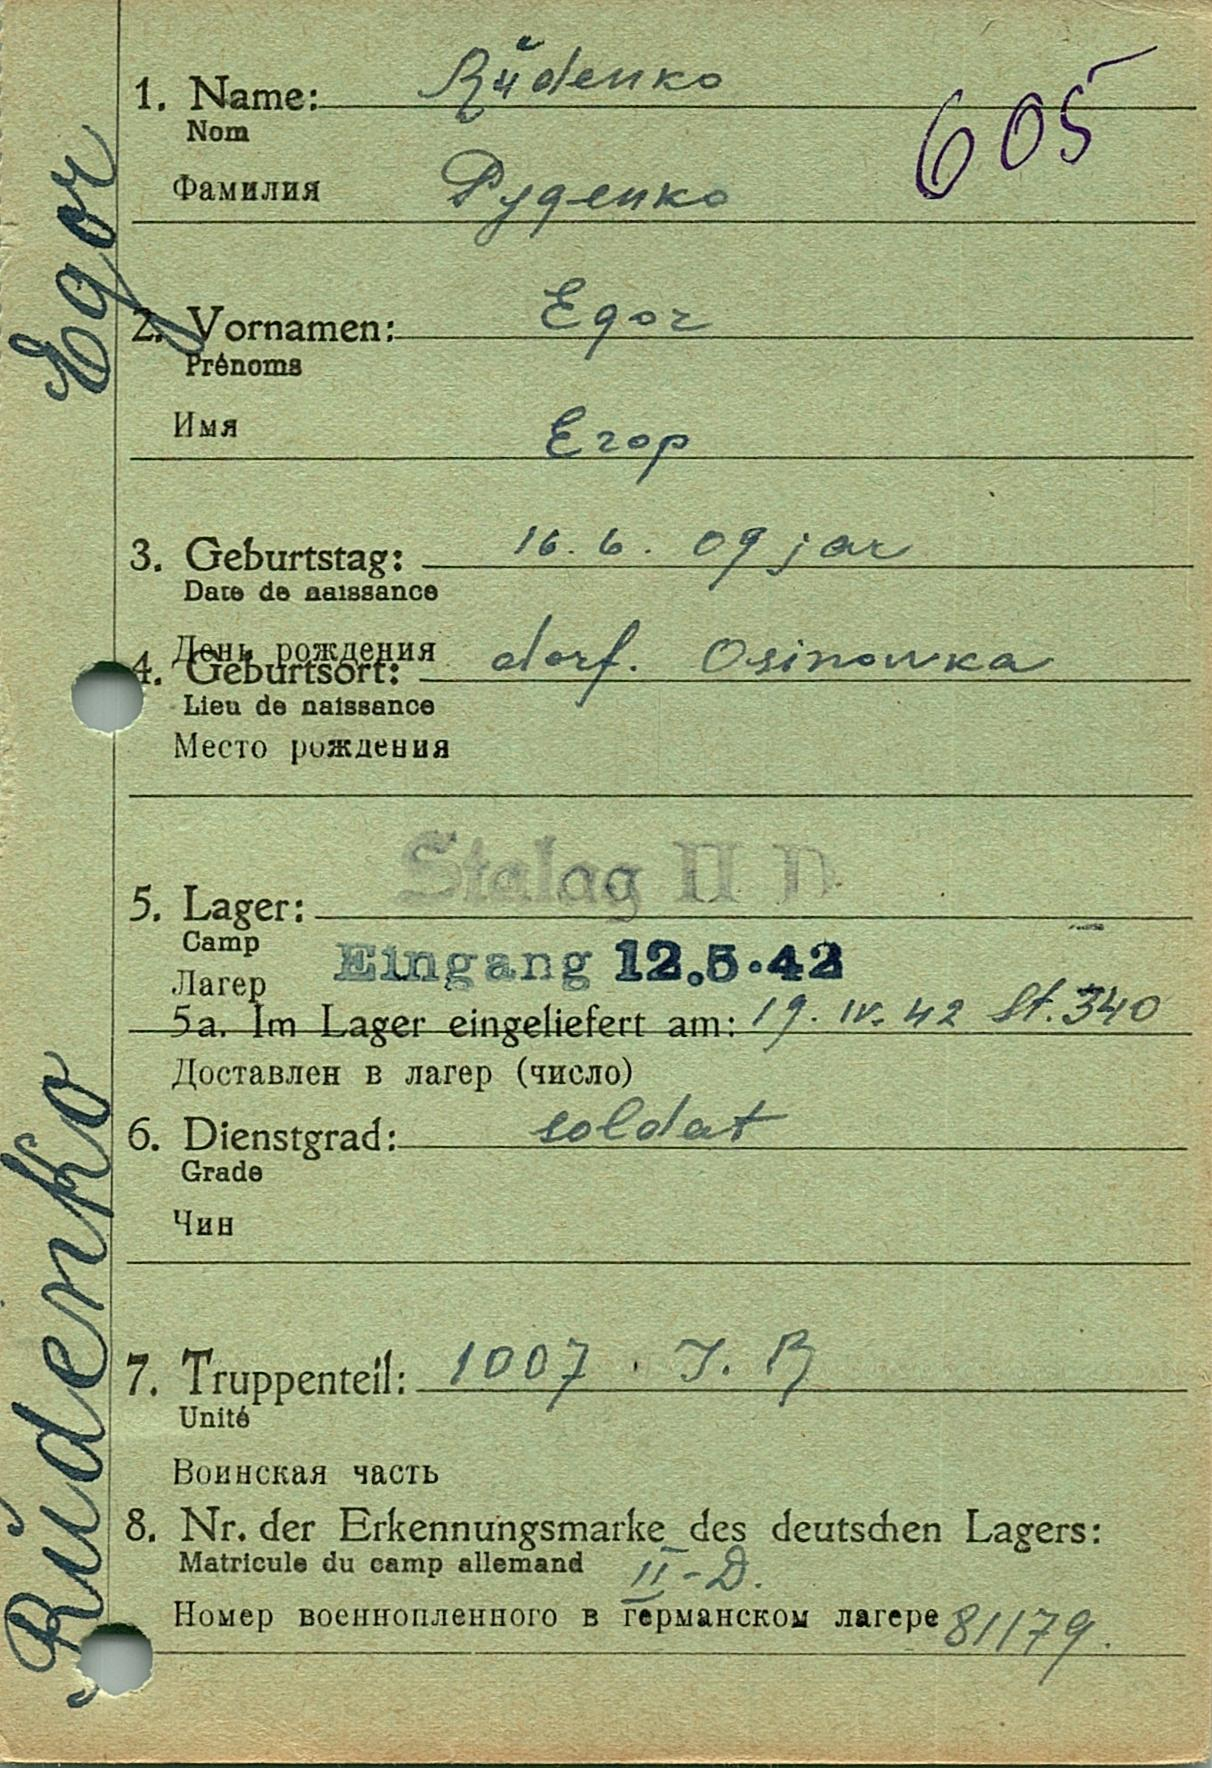 1. Name: Rŭdenko
Nom
605
Фамилия Руденко
Egor
2. Vornamen: Egor
Prénoms
Имя Егор
3. Geburtstag: 16. 6. 09 jar
Date de naissance
День рождения
4. Geburtsort: dorf. Osinowka
Lieu de naissance
Место рождения
Stalag II D
5. Lager:
Camp
Eingang 12.5.42
Лагер
5a. Im Lager eingeliefert am: 19. IV. 42 St. 340
Доставлен в лагер (число)
6. Dienstgrad: soldat
Grade
Чин
Rudenko
7. Truppenteil: 1007. J. R
Unité
Воинская часть
8. Nr. der Erkennungsmarke des deutschen Lagers:
Matricule du camp allemand II-D.
Номер военнопленного в германском лагере 81179.